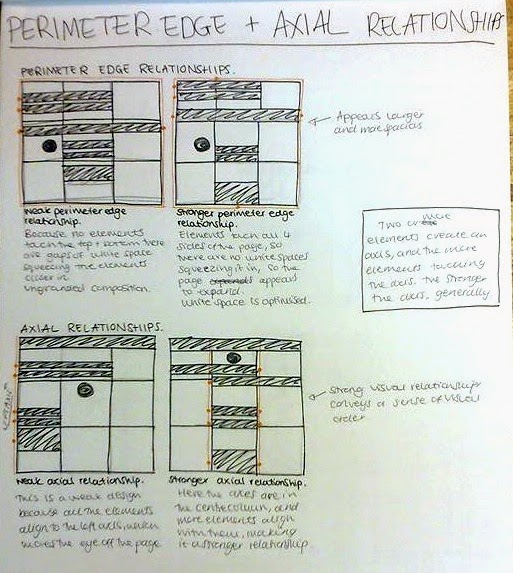 PERIMETER EDGE + AXIAL RELATIONSHIPS
PERIMETER EDGE RELATIONSHIPS.
Appears larger
and more spacious
Weak perimeter edge
relationship.
Because no elements
touch the top + bottom there
are gaps of white space
squeezing the elements
closer in
ungrounded composition.
Stronger perimeter edge
relationship.
Elements touch all 4
sides of the page, so
there are no white spaces
squeezing it in, so the
page appears
to expand.
White space is optimised.
Two or more
elements create an
axis, and the more
elements touching
the axis, the stronger
the axis, generally
AXIAL RELATIONSHIPS.
Strong visual relationship
conveys a sense of visual
order
weak axial relationship.
This is a weak design
because all the elements
align to the left axis, which
moves the eye off the page
stronger axial relationship.
Here the axes are in
the centre column, and
more elements align
with them, making
it a stronger relationship